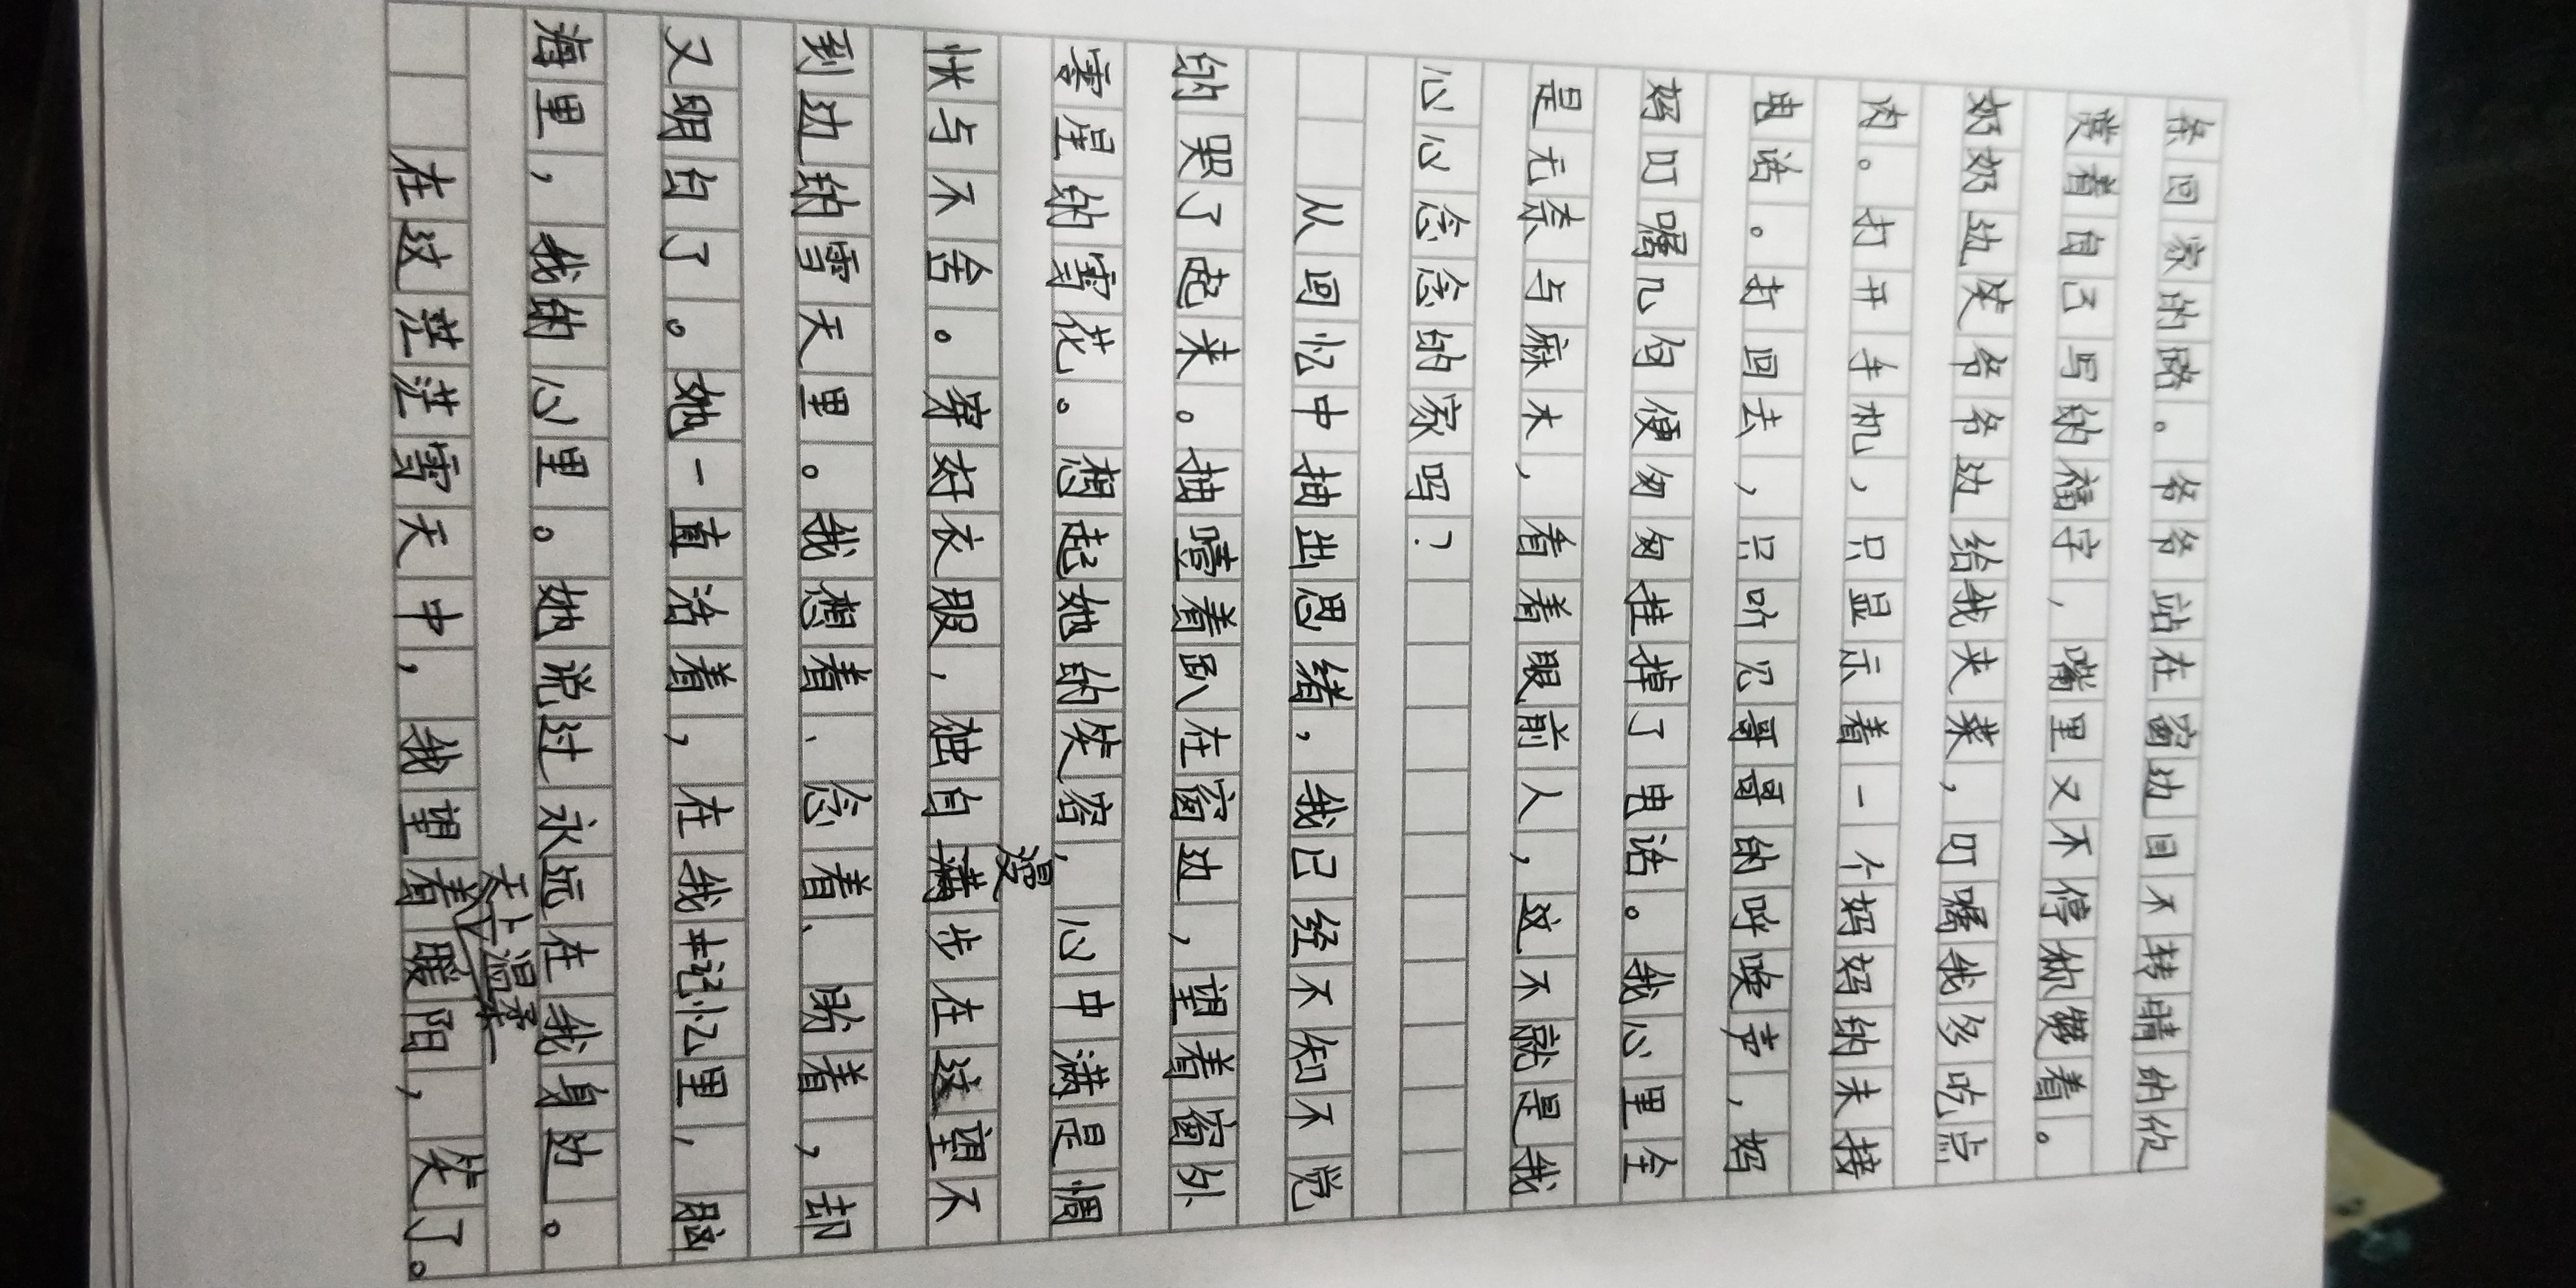 条回家的路。爷爷站在窗边目不转睛的欣
赏着自己写的福字，嘴里又不停称赞着。
奶奶边笑爷爷边给我夹菜，叮嘱我多吃点
肉。打开手机，只显示着一个妈妈的未接
电话。打回去，只听见哥哥的呼唤声，妈
妈叮嘱几句便匆匆挂掉了电话。我心里全
是无奈与麻木，看着眼前人，这不就是我
心心念念的家吗？
从回忆中抽出思绪，我已经不知不觉
的哭了起来。抽噎着趴在窗边，望着窗外
零星的雪花。想起她的笑容，心中满是惆
怅与不舍。穿好衣服，独自漫步在这望不
到边的雪天里。我想着、念着、盼着，却
又明白了。她一直活着，在我记忆里，脑
海里，我的心里。她说过永远在我身边。
在这茫茫雪天中，我望着天上温柔暖阳，笑了。